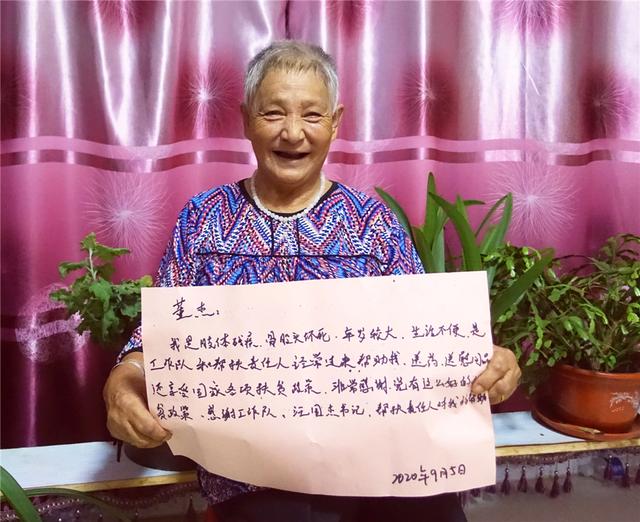 董杰:
我是肢体残疾、骨股头坏死,年岁较大,生活不便,是
工作队和帮扶责任人经常过来帮助我、送药、送慰问品
还享受国家各项扶贫政策,非常感谢党有这么好的
贫政策、感谢工作队、汪国杰书记、帮扶责任人对我的帮助
2020年9月5日